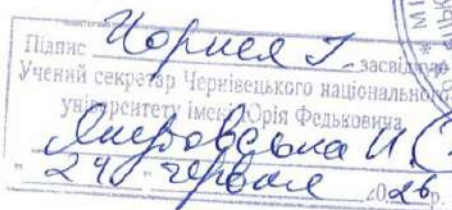 Підпис Чорней І. засвідчую
Учений секретар Чернівецького національного
університету імені Юрія Федьковича
И.
"24" червня 2026 р.